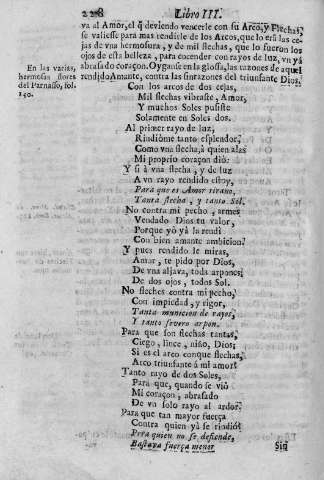 228 Libro III.
va al Amor, el q̃ deviendo vencerle con su Arco, y Flechas,
se valiesse para mas rendirle de los Arcos, que lo eran las ce-
jas de vna hermosura, y de mil flechas, que lo fueron los
ojos de esta belleza, para encender con rayos de luz, vn yà
abrasado coraçon. Oyganse en la glossa, las razones de aquel
rendido Amante, contra las sinrazones del triunfante Dios.
En las varias,
hermosas flores
del Parnasso, fol.
150.
Con los arcos de dos cejas,
Mil flechas vibraste, Amor,
Y muchos Soles pusiste
Solamente en Soles dos.
Al primer rayo de luz,
Rindiòme tanto esplendor,
Como vna flecha, à quien alas
Mi proprio coraçon diò:
Y si à vna flecha, y de luz
A vn rayo rendido estoy,
Para que es Amor tirano,
Tanta flecha, y tanto Sol.
No contra mi pecho, armes
Vendado Dios tu valor,
Porque yò yà la rendi
Con bien amante ambicion.
Y pues rendido le miras,
Amor, te pido por Dios,
De vna aljava, tods arpones;
De dos ojos, todos Sol.
No fleches contra mi pecho,
Con impiedad, y rigor,
Tanta municion de rayos,
Y tanto severo arpon.
Para que son flechas tantas,
Ciego, lince, niño, Dios;
Si es el arco conque flechas,
Arco triunfante à mi amor?
Tanto rayo de dos Soles,
Para que, quando se viò
Mi coraçon, abrasado
De vn solo rayo al ardor?
Para que tan mayor fuerça
Contra quien yà se rindiò?
Pera quien no se defiende,
Bastava fuerça menor
Sin